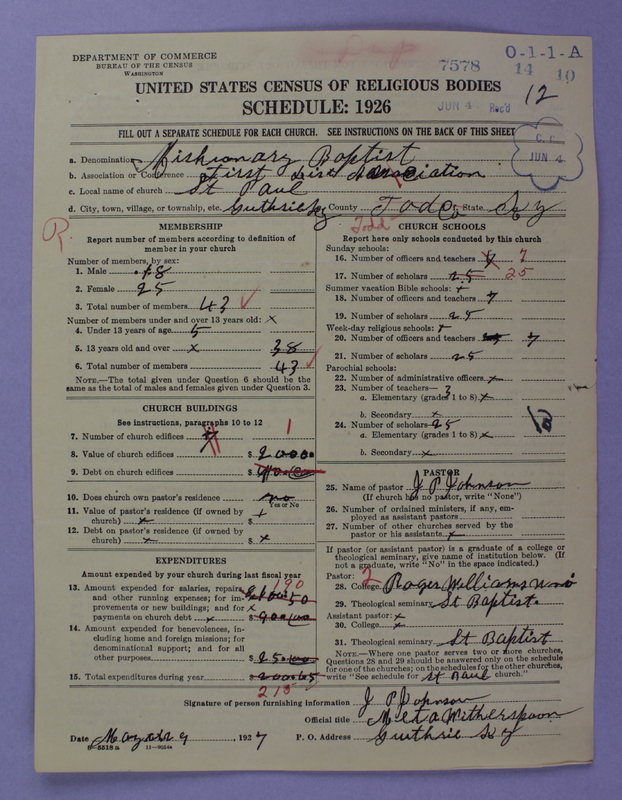 DEPARTMENT OF COMMERCE
BUREAU OF THE CENSUS
WASHINGTON
7578
O-1-1-A
14 10
UNITED STATES CENSUS OF RELIGIOUS BODIES
SCHEDULE: 1926
JUN 4 Rec'd
12
FILL OUT A SEPARATE SCHEDULE FOR EACH CHURCH. SEE INSTRUCTIONS ON THE BACK OF THIS SHEET
C. C.
JUN 4
a. Denomination Mishionary Baptist
b. Association or Conference First Dist Association
c. Local name of church St Paul
d. City, town, village, or township, etc. Guthrie Ky County Tod Co State Ky
Todd
R.
MEMBERSHIP
Report number of members according to definition of
member in your church
Number of members, by sex:
1. Male 18
2. Female 25
3. Total number of members 43
Number of members under and over 13 years old: x
4. Under 13 years of age 5
5. 13 years old and over x 38
6. Total number of members 43
NOTE.—The total given under Question 6 should be the
same as the total of males and females given under Question 3.
CHURCH BUILDINGS
See instructions, paragraphs 10 to 12
7. Number of church edifices 1
8. Value of church edifices $ 2000
9. Debt on church edifices $
10. Does church own pastor's residence no
Yes or No
11. Value of pastor's residence (if owned by
church) x $
12. Debt on pastor's residence (if owned by
church) x $ x
EXPENDITURES
Amount expended by your church during last fiscal year
13. Amount expended for salaries, repairs,
and other running expenses; for im-
provements or new buildings; and for
payments on church debt x $
190
14. Amount expended for benevolences, in-
cluding home and foreign missions; for
denominational support; and for all
other purposes $ 25.00
15. Total expenditures during year $
215
CHURCH SCHOOLS
Report here only schools conducted by this church
Sunday schools:
16. Number of officers and teachers 7
17. Number of scholars 25 25
Summer vacation Bible schools: +
18. Number of officers and teachers 7
19. Number of scholars 25
Week-day religious schools: +
20. Number of officers and teachers 7
21. Number of scholars 25
Parochial schools:
22. Number of administrative officers x
23. Number of teachers— 3
a. Elementary (grades 1 to 8) x
b. Secondary x
24. Number of scholars— 25
a. Elementary (grades 1 to 8) x
b. Secondary x
PASTOR
25. Name of pastor J P Johnson
(If church has no pastor, write "None")
26. Number of ordained ministers, if any, em-
ployed as assistant pastors
27. Number of other churches served by the
pastor or his assistants x
If pastor (or assistant pastor) is a graduate of a college or
theological seminary, give name of institution below. (If
not a graduate, write "No" in the space indicated.)
Pastor: 2
28. College Roger Williams
29. Theological seminary St Baptist.
Assistant pastor: x
30. College x
31. Theological seminary St Baptist
NOTE.—Where one pastor serves two or more churches,
Questions 28 and 29 should be answered only on the schedule
for one of the churches; on the schedules for the other churches,
write "See schedule for St Paul church."
Signature of person furnishing information J P Johnson
Official title Meta Witherspoon
Date May 9, 1927 P. O. Address Guthrie Ky
8-5518 a 11-9064a